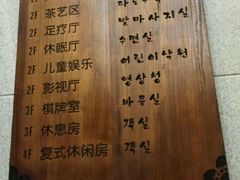 2F 茶艺区
2F 足疗厅 발마사지실
2F 休眠厅 수면실
2F 儿童娱乐 어린이낙원
2F 影视厅 영상청
3F 棋牌室 바둑실
3F 休息房 객실
4F 复式休闲房 객실